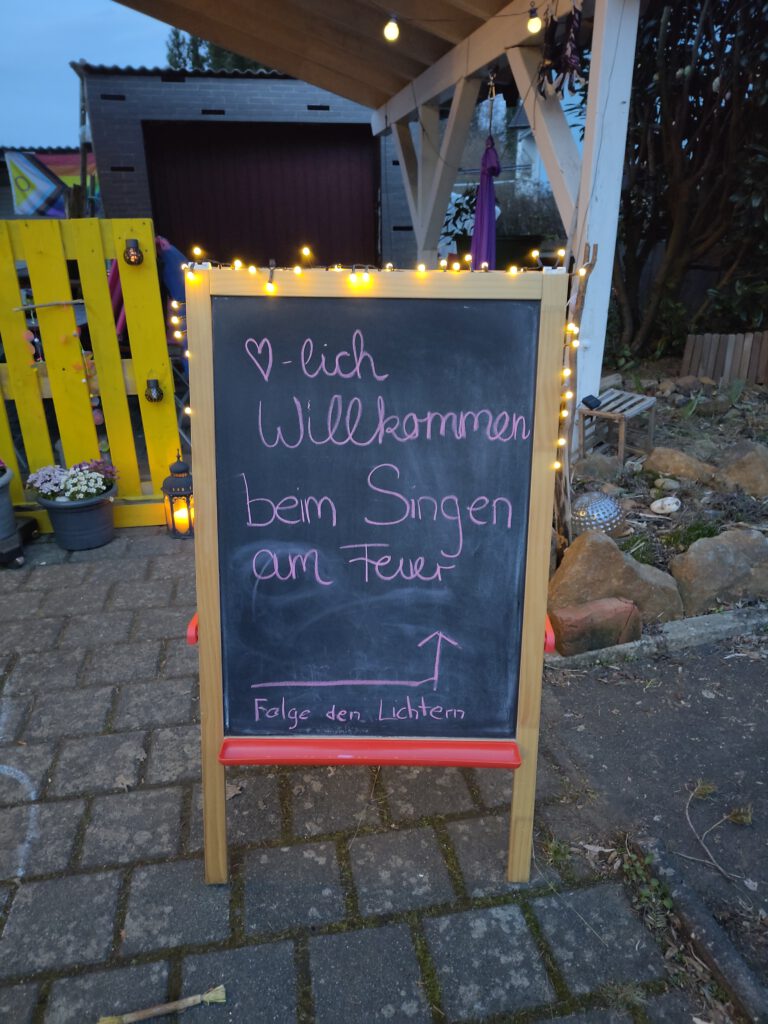 ♡-lich
Willkommen
beim Singen
am Feuer
Folge den Lichtern